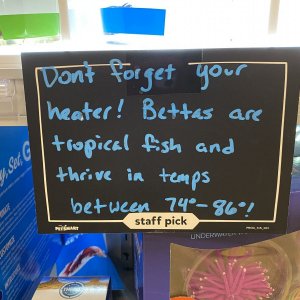 Don't forget your
heater! Bettas are
tropical fish and
thrive in temps
between 74°-86°!
staff pick
PETSMART
UNDERWATER